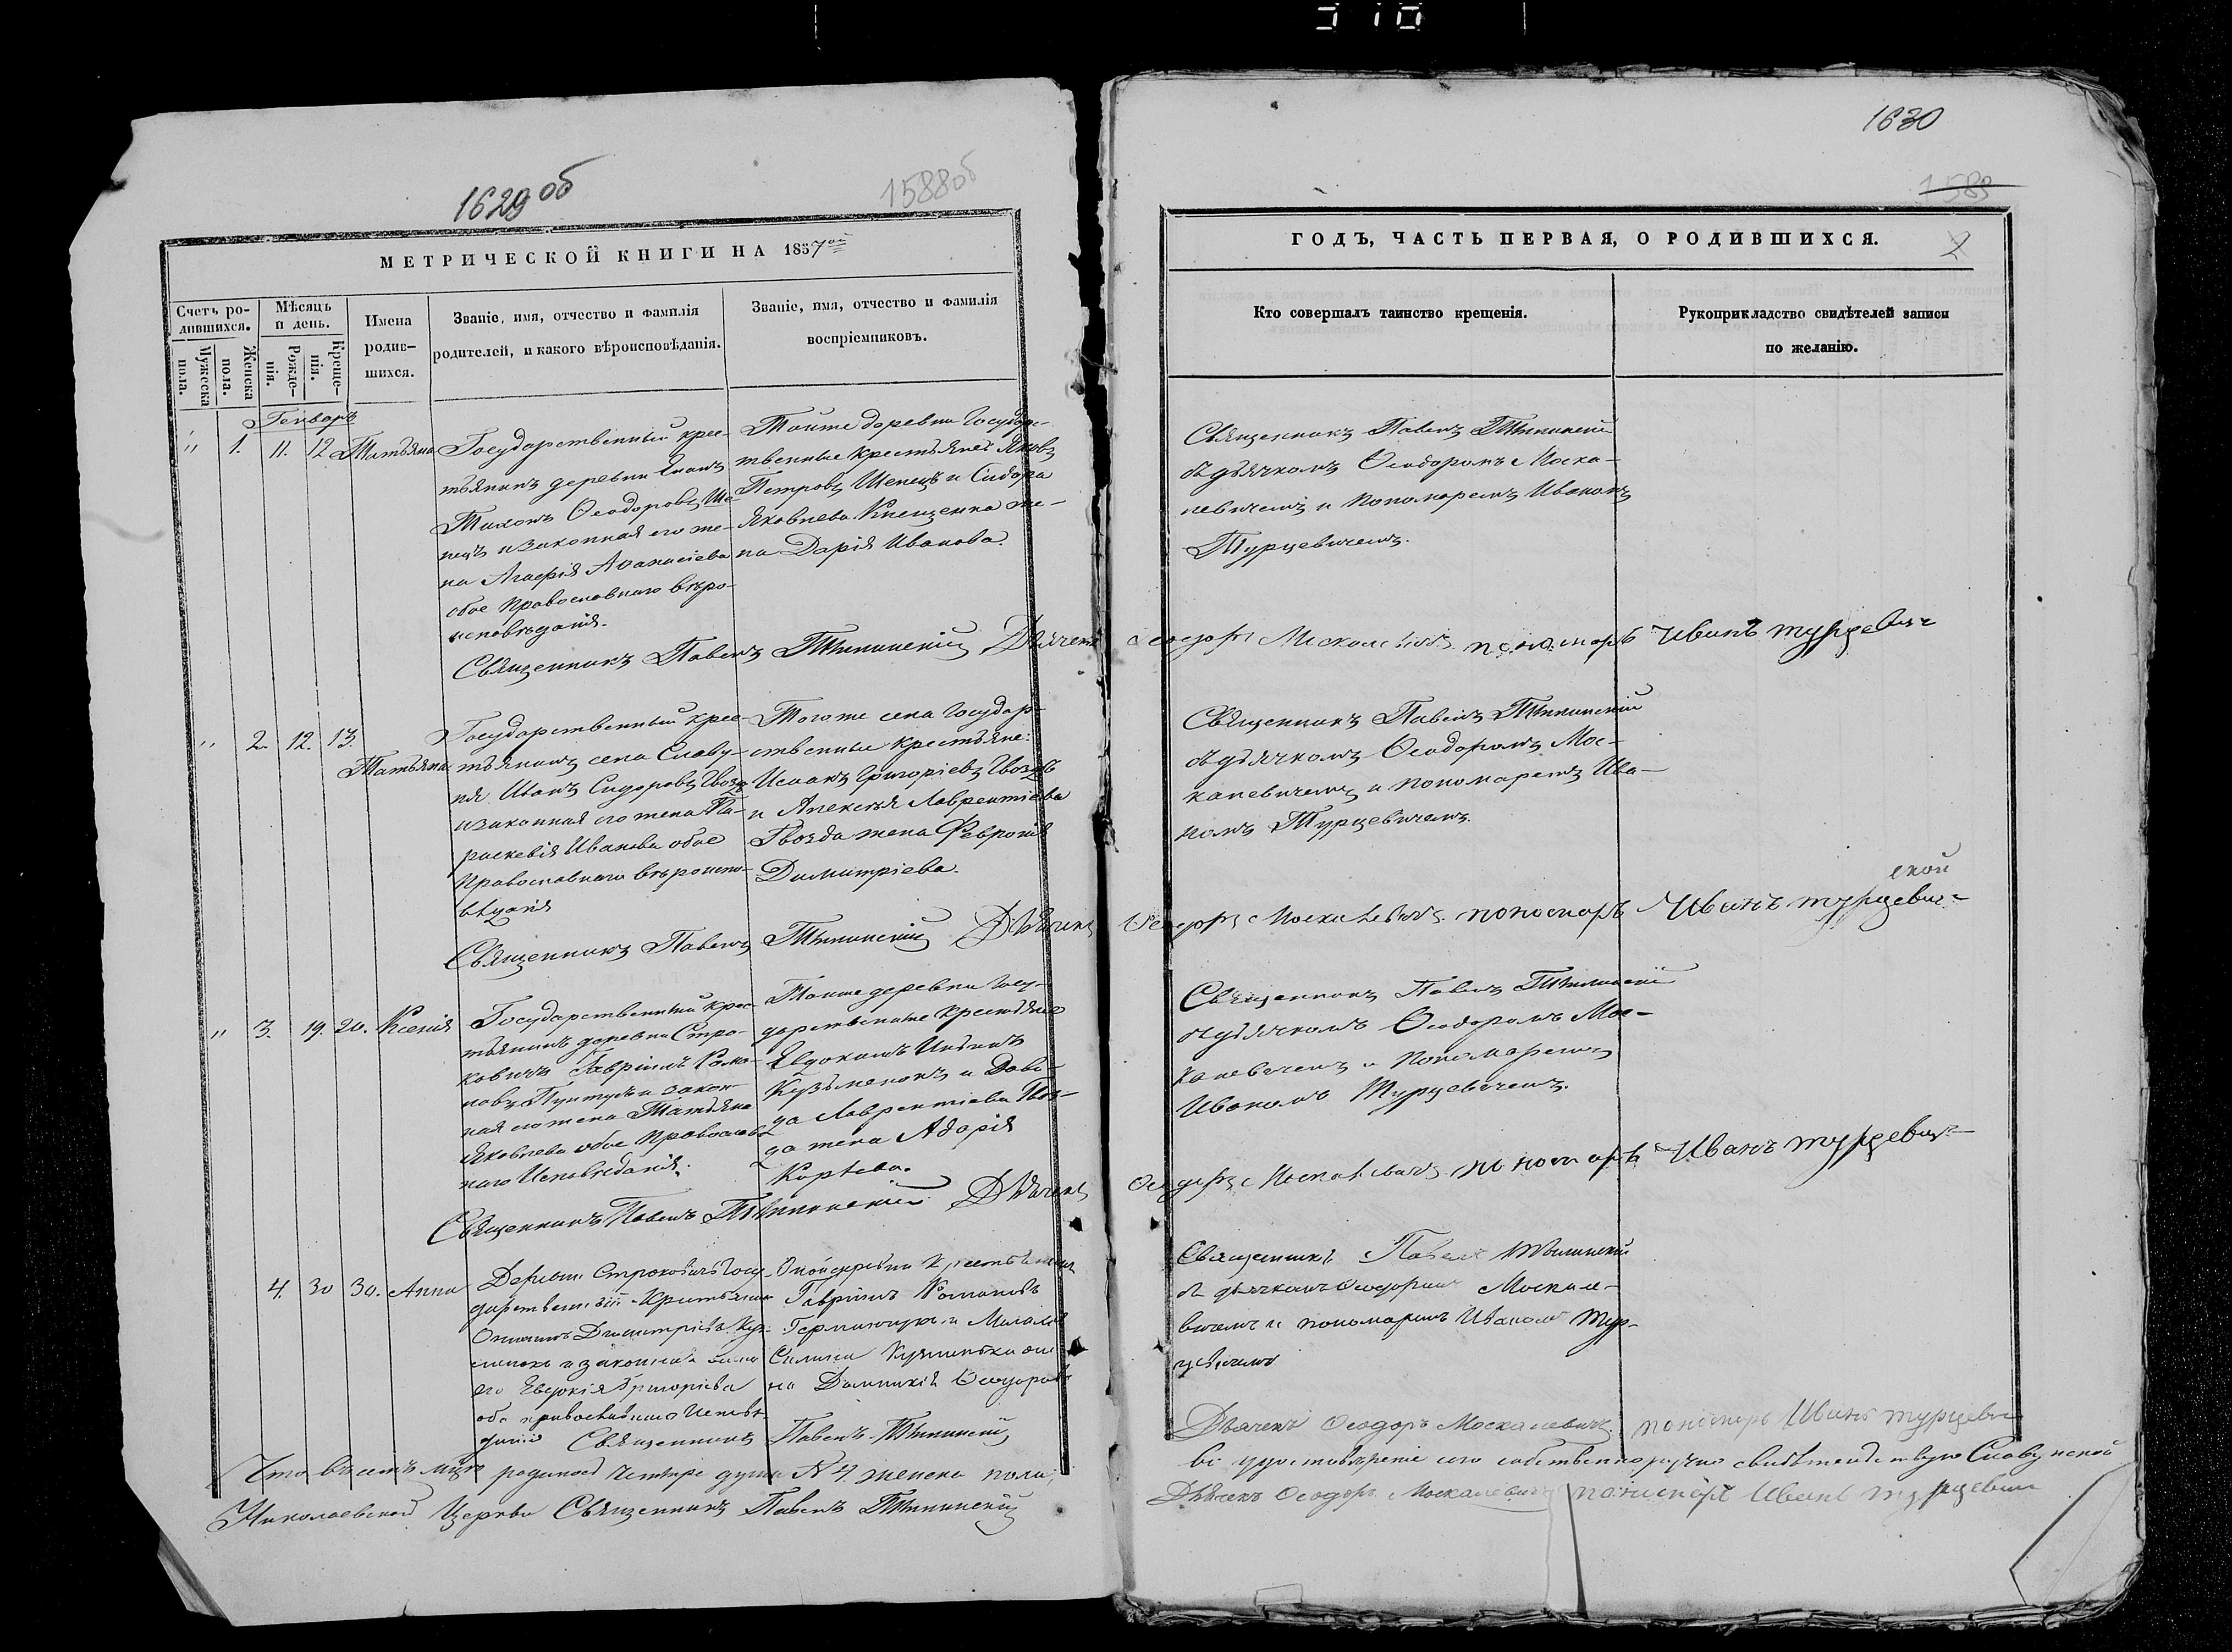 1630
1629 об
1588 об
1589
МЕТРИЧЕСКОЙ КНИГИ НА 1857ой
ГОДЪ, ЧАСТЬ ПЕРВАЯ, О РОДИВШИХСЯ.
2
Счетъ ро-
дившихся.
Мужеска
пола.
Женска
пола.
Мѣсяцъ
и день.
Рожде-
нія.
Креще-
нія.
Имена
родив-
шихся.
Званіе, имя, отчество и фамилія
родителей, и какого вѣроисповѣданія.
Званіе, имя, отчество и фамилія
воспріемниковъ.
Кто совершалъ таинство крещенія.
Рукоприкладство свидѣтелей записи
по желанію.
Генварь
" 1. 11. 12. Татьяна
Государственный крес-
тьянинъ деревни
Тихонъ Ѳеодоровъ Ше-
пецъ и законная его же-
на Агафія Аѳанасіева
обое Православнаго вѣро-
исповѣданія.
Тойже деревни Государ-
твенные крестьяне Яковъ
Петровъ Шепецъ и Сидора
Яковлева Клещенка же-
на Дарія Иванова.
Священникъ Павелъ
дьячкомъ Ѳеодоромъ Моска-
левичемъ и пономаремъ Иваномъ
Турцевичемъ.
Священникъ Павелъ Дьячекъ Ѳеодоръ Москалевичъ пономарь Иванъ Турцевич
" 2. 12. 13. Татьяна
Государственный крес-
тьянинъ села Славу-
ня Иванъ Сидоровъ Гвоздь
и законная его жена Па-
раскевія Иванова обое
Православнаго вѣроиспо-
вѣданія
Того же села Государ-
ственные крестьяне:
Исаакъ Григоріевъ Гвоздь
и Алексѣя Лаврентіева
Гвоздя жена Февронія
Димитріева.
Священникъ Павелъ
съ дьячкомъ Ѳеодоромъ Мос-
калевичемъ и пономаремъ Ива-
номъ Турцевичемъ.
ской
Священникъ Павелъ Дьячекъ Ѳеодоръ Москалевичъ пономарь Иванъ Турцевич
" 3. 19. 20. Ксенія
Государственный крес-
тьянинъ деревни Стро-
ковичъ Гавріилъ Рома-
новъ и закон-
ная его жена Татьяна
Яковлева обое Православ-
наго Исповѣданія.
Тойже деревни Госу-
дарственные крестьяне
Евдокимъ
Кузьменокъ и Дави-
да Лаврентіева Гвоз-
да жена
Священникъ Павелъ
съ дьячкомъ Ѳеодоромъ Мос-
калевичемъ и Пономаремъ
Иваномъ Турцевичемъ.
Священникъ Павелъ Дьячекъ Ѳеодоръ Москалевичъ пономарь Иванъ Турцевич
4. 30 30. Анна
Деревни Строковичъ Госу-
дарственный Крестьянинъ
Димитріевъ Куз-
менокъ и законная жена
его Евдокія Григоріева
оба православнаго Исповѣ-
данія
Оной деревни Крестьянинъ
Гавріилъ Романовъ
и
Кузменка же-
на Ѳеодорова
Священникъ Павелъ
съ дьячкомъ Ѳеодоромъ Москале-
вичемъ и пономаремъ Иваномъ Тур-
цевичемъ
Священникъ Павелъ
Дьячекъ Ѳеодоръ Москалевичъ пономарь Иванъ Турцевич
Что въ семъ мцѣ родилось четыре души N 4 женска пола,
въ удостовѣреніе сего собственноручно свидѣтельствую Славунской
Николаевской Церкви Священникъ Павелъ
Дьячекъ Ѳеодоръ Москалевичъ пономарь Иванъ Турцевич